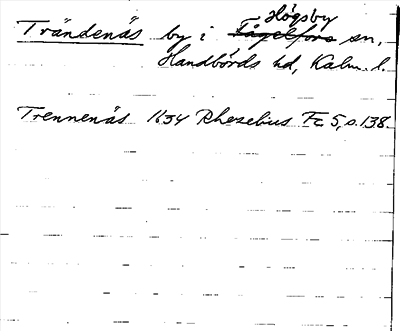 Trändenäs by i Högsby Fågelfors sn,
Handbörds hd, Kalm. l.
Trennenäs 1634 Rhezelius Fc 5, s. 138.